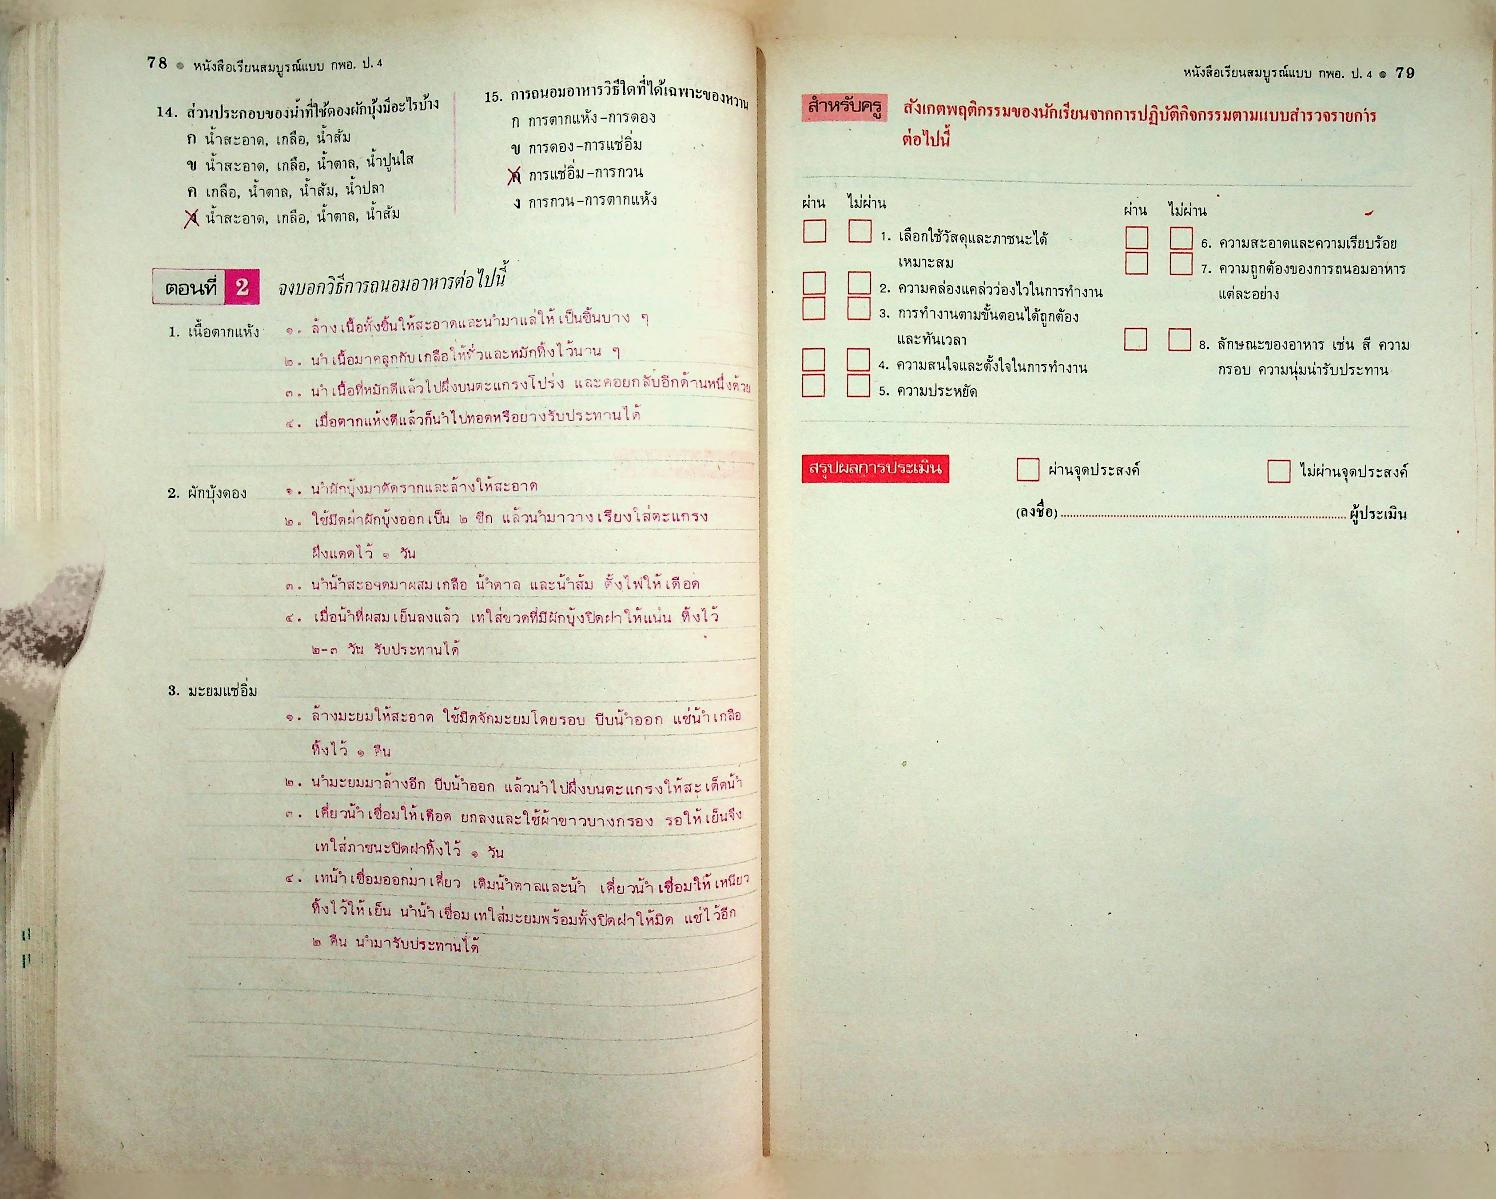 78 ● หนังสือเรียนสมบูรณ์แบบ กพอ. ป.4
14. ส่วนประกอบของน้ำที่ใช้ดองผักบุ้งมีอะไรบ้าง
ก น้ำสะอาด, เกลือ, น้ำส้ม
ข น้ำสะอาด, เกลือ, น้ำตาล, น้ำปูนใส
ค เกลือ, น้ำตาล, น้ำส้ม, น้ำปลา
ง น้ำสะอาด, เกลือ, น้ำตาล, น้ำส้ม
15. การถนอมอาหารวิธีใดที่ได้เฉพาะของหวาน
ก การตากแห้ง-การดอง
ข การดอง-การแช่อิ่ม
ค การแช่อิ่ม-การกวน
ง การกวน-การตากแห้ง
ตอนที่ 2 จงบอกวิธีการถนอมอาหารต่อไปนี้
1. เนื้อตากแห้ง ๑. ล้างเนื้อทั้งชิ้นให้สะอาดและนำมาแล่ให้เป็นชิ้นบาง ๆ
๒. นำเนื้อมาคลุกกับเกลือให้ทั่วและหมักทิ้งไว้นาน ๆ
๓. นำเนื้อที่หมักดีแล้วไปผึ่งบนตะแกรงโปร่ง และคอยกลับอีกด้านหนึ่งด้วย
๔. เมื่อตากแห้งดีแล้วก็นำไปทอดหรือย่างรับประทานได้
2. ผักบุ้งดอง ๑. นำผักบุ้งมาตัดรากและล้างให้สะอาด
๒. ใช้มีดผ่าผักบุ้งออกเป็น ๒ ซีก แล้วนำมาวางเรียงใส่ตะแกรง
ผึ่งแดดไว้ ๑ วัน
๓. นำน้ำสะอาดมาผสมเกลือ น้ำตาล และน้ำส้ม ตั้งไฟให้เดือด
๔. เมื่อน้ำที่ผสมเย็นลงแล้ว เทใส่ขวดที่มีผักบุ้งปิดฝาให้แน่น ทิ้งไว้
๒-๓ วัน รับประทานได้
3. มะยมแช่อิ่ม
๑. ล้างมะยมให้สะอาด ใช้มีดจักมะยมโดยรอบ บีบน้ำออก แช่น้ำเกลือ
ทิ้งไว้ ๑ คืน
๒. นำมะยมมาล้างอีก บีบน้ำออก แล้วนำไปผึ่งบนตะแกรงให้สะเด็ดน้ำ
๓. เคี่ยวน้ำเชื่อมให้เดือด ยกลงและใช้ผ้าขาวบางกรอง รอให้เย็นจึง
เทใส่ภาชนะปิดฝาทิ้งไว้ ๑ วัน
๔. เทน้ำเชื่อมออกมาเคี่ยว เติมน้ำตาลและน้ำ เคี่ยวน้ำเชื่อมให้เหนียว
ทิ้งไว้ให้เย็น นำน้ำเชื่อมเทใส่มะยมพร้อมทั้งปิดฝาให้มิด แช่ไว้อีก
๒ คืน นำมารับประทานได้
หนังสือเรียนสมบูรณ์แบบ กพอ. ป.4 ● 79
สำหรับครู สังเกตพฤติกรรมของนักเรียนจากการปฏิบัติกิจกรรมตามแบบสำรวจรายการ
ต่อไปนี้
ผ่าน ไม่ผ่าน
1. เลือกใช้วัสดุและภาชนะได้
เหมาะสม
2. ความคล่องแคล่วว่องไวในการทำงาน
3. การทำงานตามขั้นตอนได้ถูกต้อง
และทันเวลา
4. ความสนใจและตั้งใจในการทำงาน
5. ความประหยัด
ผ่าน ไม่ผ่าน
6. ความสะอาดและความเรียบร้อย
7. ความถูกต้องของการถนอมอาหาร
แต่ละอย่าง
8. ลักษณะของอาหาร เช่น สี ความ
กรอบ ความนุ่มน่ารับประทาน
สรุปผลการประเมิน ผ่านจุดประสงค์ ไม่ผ่านจุดประสงค์
(ลงชื่อ)........................................ผู้ประเมิน